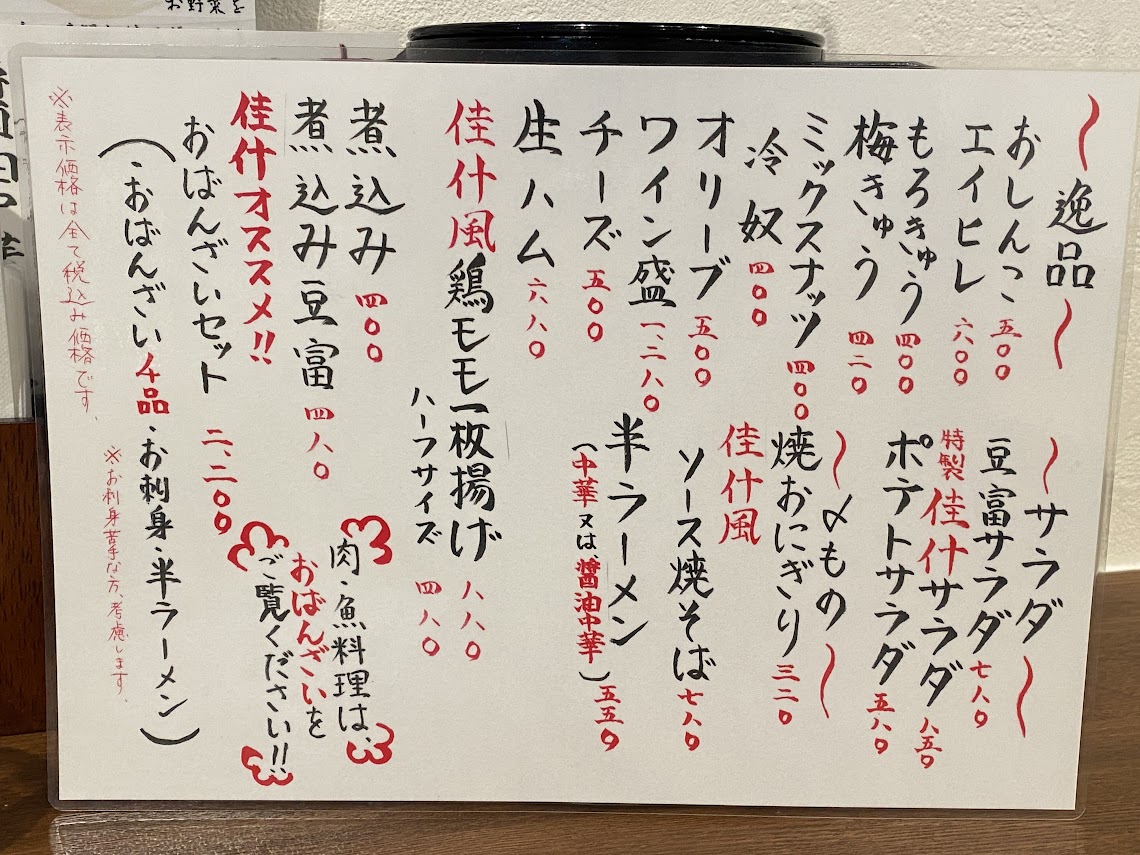 〜逸品〜
おしんこ 五〇〇
エイヒレ 六〇〇
もろきゅう 四〇〇
梅きゅう 四二〇
ミックスナッツ 四〇〇
冷奴 四〇〇
オリーブ 五〇〇
ワイン盛 一、二八〇
チーズ 五〇〇
生ハム 六八〇
〜サラダ〜
豆富サラダ 七八〇
特製佳什サラダ 八五〇
ポテトサラダ 五八〇
〜〆もの〜
焼おにぎり 三二〇
佳什風
ソース焼そば 七八〇
半ラーメン
(中華又は、醤油中華) 五五〇
佳什風鶏モモ一枚揚げ 八八〇
ハーフサイズ 四八〇
煮込み 四〇〇
煮込み豆富 四八〇
佳什オススメ!!
おばんざいセット 二、二〇〇
(・おばんざい4品・お刺身・半ラーメン)
※お刺身苦手な方、考慮します。
肉・魚料理は、
おばんざいを
ご覧ください!!
※表示価格は全て税込み価格です。
お野菜を